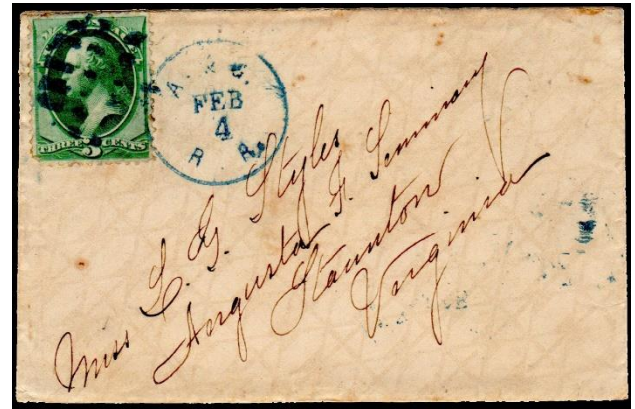 THREE 3 CENTS
FEB
4
R R.
Miss L. G. Styles
Augusta F. Seminary
Staunton
Virginia